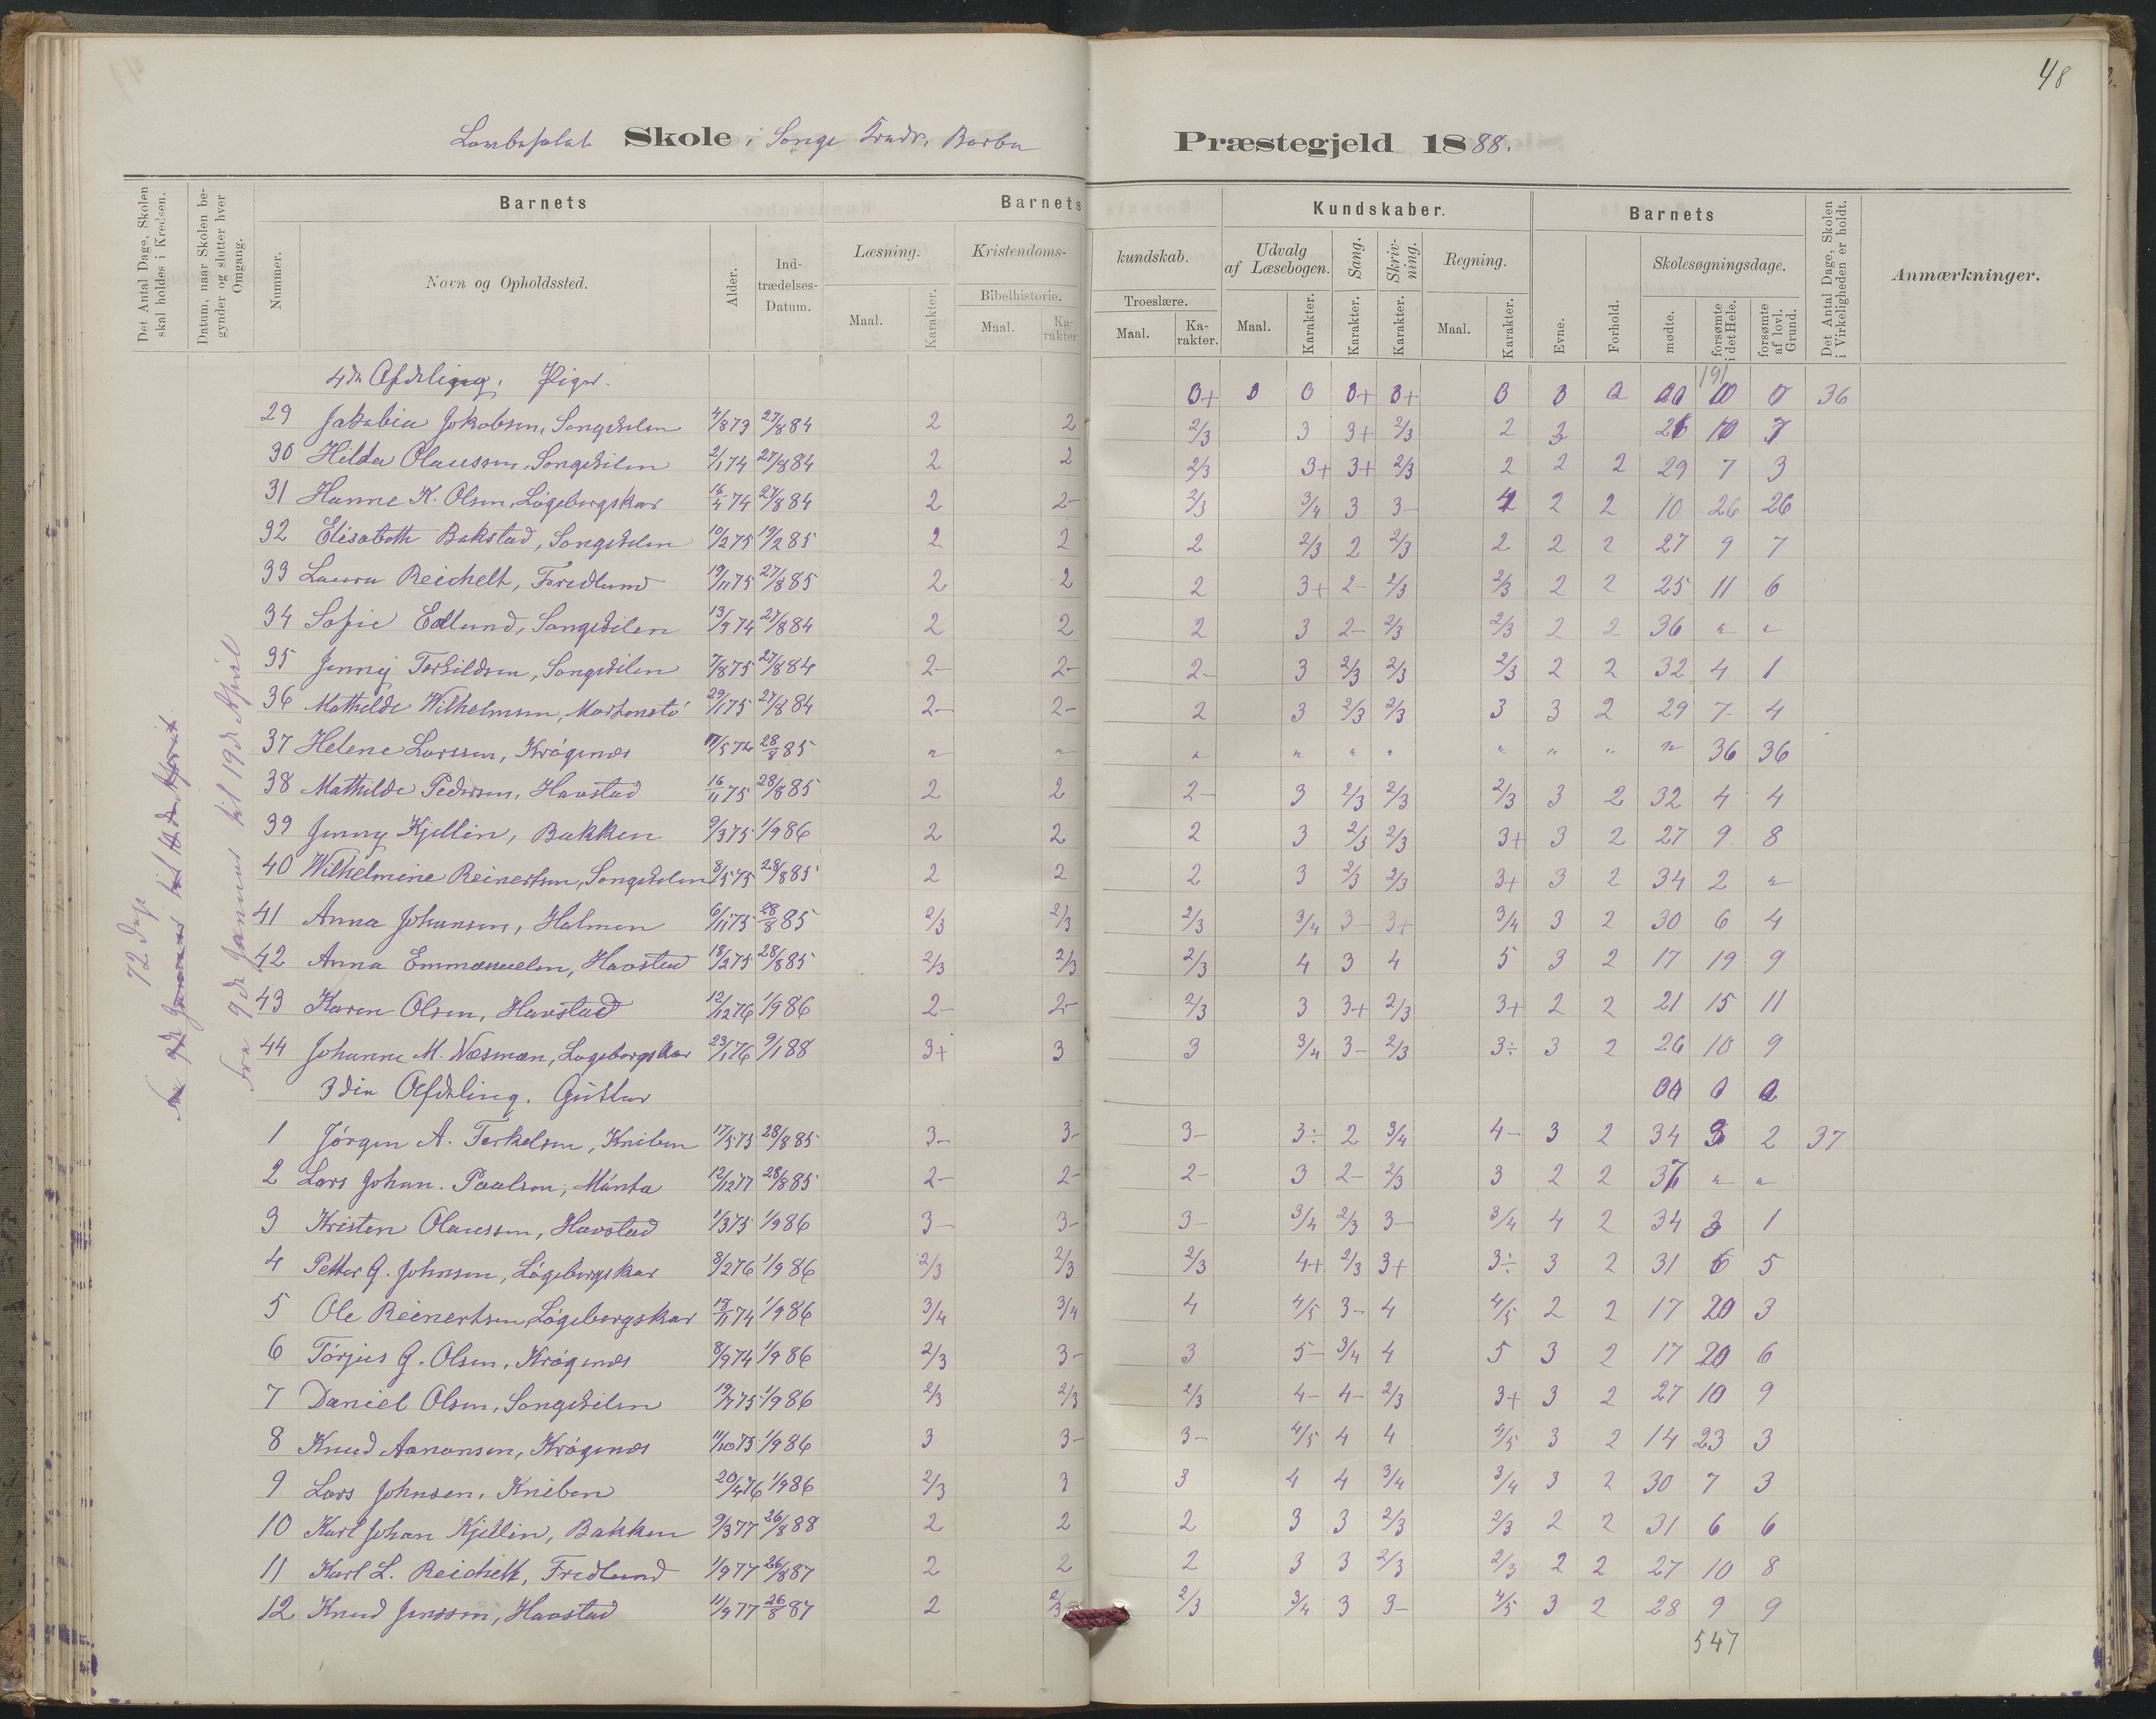 48
Skole i Songe Barbu Præstegjeld 1888.
Det Antal Dage, Skolen skal holdes i Kredsen.
Datum, naar Skolen begynder og slutter hver Omgang.
Barnets
Nummer. Navn og Opholdssted. Alder. Indtrædelses-Datum.
Barnets Kundskaber.
Læsning. Maal. Karakter.
Kristendomskundskab.
Bibelhistorie. Maal. Karakter.
Troeslære. Maal. Karakter.
Udvalg af Læsebogen. Maal. Karakter.
Sang. Karakter.
Skrivning. Karakter.
Regning. Maal. Karakter.
Barnets
Evne. Forhold.
Skolesøgningsdage. mødte. forsømte i det Hele. forsømte af lovl. Grund.
Det Antal Dage, Skolen i Virkeligheden er holdt.
Anmærkninger.
72 Dage
Fra 9de Januar til 19de April
4de Afdeling. Piger. 191 36
29 Jakobia Jakobsen, Songekilen 4/8 73 27/8 84 2 2 2/3 3 3+ 2/3 2 3 26 10 7
30 Hilda Olaussen, Songekilen 2/1 74 27/8 84 2 2 2/3 3+ 3+ 2/3 2 2 2 29 7 3
31 Hanne K. Olsen, Løgebergskar 16/4 74 27/8 84 2 2- 2/3 3/4 3 3- 4 2 2 10 26 26
32 Elisabeth Bakstad, Songekilen 10/2 75 19/2 85 2 2 2 2/3 2 2/3 2 2 2 27 9 7
33 Laura Reichelt, Fredlund 19/11 75 27/8 85 2 2 2 3+ 2- 2/3 2/3 2 2 25 11 6
34 Sofie Edlund, Songekilen 13/9 74 27/8 84 2 2 2 3 2- 2/3 2/3 2 2 36 " "
35 Jenny Terkildsen, Songekilen 7/8 75 27/8 84 2- 2- 2- 3 2/3 2/3 2/3 2 2 32 4 1
36 Mathilde Wilhelmsen, Mortensto 29/1 75 27/8 84 2- 2- 2 3 2/3 2/3 3 3 2 29 7 4
37 Helene Larssen, Krøgenæs 11/5 74 28/8 85 " " " " " " " " " " 36 36
38 Mathilde Pedersen, Havstad 16/11 75 28/8 85 2 2 2- 3 2/3 2/3 2/3 3 2 32 4 4
39 Jenny Kjellin, Bakken 9/3 75 1/9 86 2 2 2 3 2/3 2/3 3+ 3 2 27 9 8
40 Wilhelmine Reinertsen, Songekilen 8/5 75 28/8 85 2 2 2 3 2/3 2/3 3+ 3 2 34 2 "
41 Anna Johansen, Holmen 6/11 75 28/8 85 2/3 2/3 2/3 3/4 3- 3+ 3/4 3 2 30 6 4
42 Anna Emmanuelsen, Havstad 18/2 75 28/8 85 2/3 2/3 2/3 4 3 4 5 3 2 17 19 9
43 Karen Olsen, Havstad 12/12 76 1/9 86 2- 2- 2/3 3 3+ 2/3 3+ 2 2 21 15 11
44 Johanne M. Næsman, Løgebergskar 23/1 76 9/1 88 3+ 3 3 3/4 3- 2/3 3÷ 3 2 26 10 9
3die Afdeling. Gutter
1 Jørgen A. Terkelsen, Kniben 17/5 75 28/8 85 3- 3- 3- 3÷ 2 3/4 4- 3 2 34 3 2 37
2 Lars Johan. Paulsen, 12/12 77 28/8 85 2- 2- 2- 3 2- 2/3 3 2 2 37 " "
3 Kristen Olaussen, Havstad 1/3 75 1/9 86 3- 3- 3- 3/4 2/3 3- 3/4 4 2 34 3 1
4 Petter G. Johnsen, Løgebergskar 8/2 76 1/9 86 2/3 2/3 2/3 4+ 2/3 3+ 3÷ 3 2 31 6 5
5 Ole Reinertsen, Løgebergskar 18/11 74 1/9 86 3/4 3/4 4 4/5 3- 4 4/5 2 2 17 20 3
6 Tórjus G. Olsen, Krøgenæs 8/9 74 1/9 86 2/3 3- 3 5- 3/4 4 5 3 2 17 20 6
7 Daniel Olsen, Songekilen 19/7 75 1/9 86 2/3 2/3 2/3 4- 4- 2/3 3+ 3 2 27 10 9
8 Knud Aanonsen, Krøgenæs 11/10 75 1/9 86 3 3- 3- 4/5 4 4 4/5 3 2 14 23 3
9 Lars Johnsen, Kniben 20/4 76 1/9 86 2/3 3 3 4 4 3/4 3/4 3 2 30 7 3
10 Karl Johan Kjellin, Bakken 9/3 77 26/8 88 2 2 2 3 3 2/3 2/3 2 2 31 6 6
11 Karl L. Reichelt, Fredlund 1/9 77 26/8 87 2 2 2 3 3 2/3 2/3 2 2 27 10 8
12 Knud Jenssen, Havstad 11/9 77 26/8 87 2 2/3 2/3 3/4 3 3- 4/5 3 2 28 9 9
547